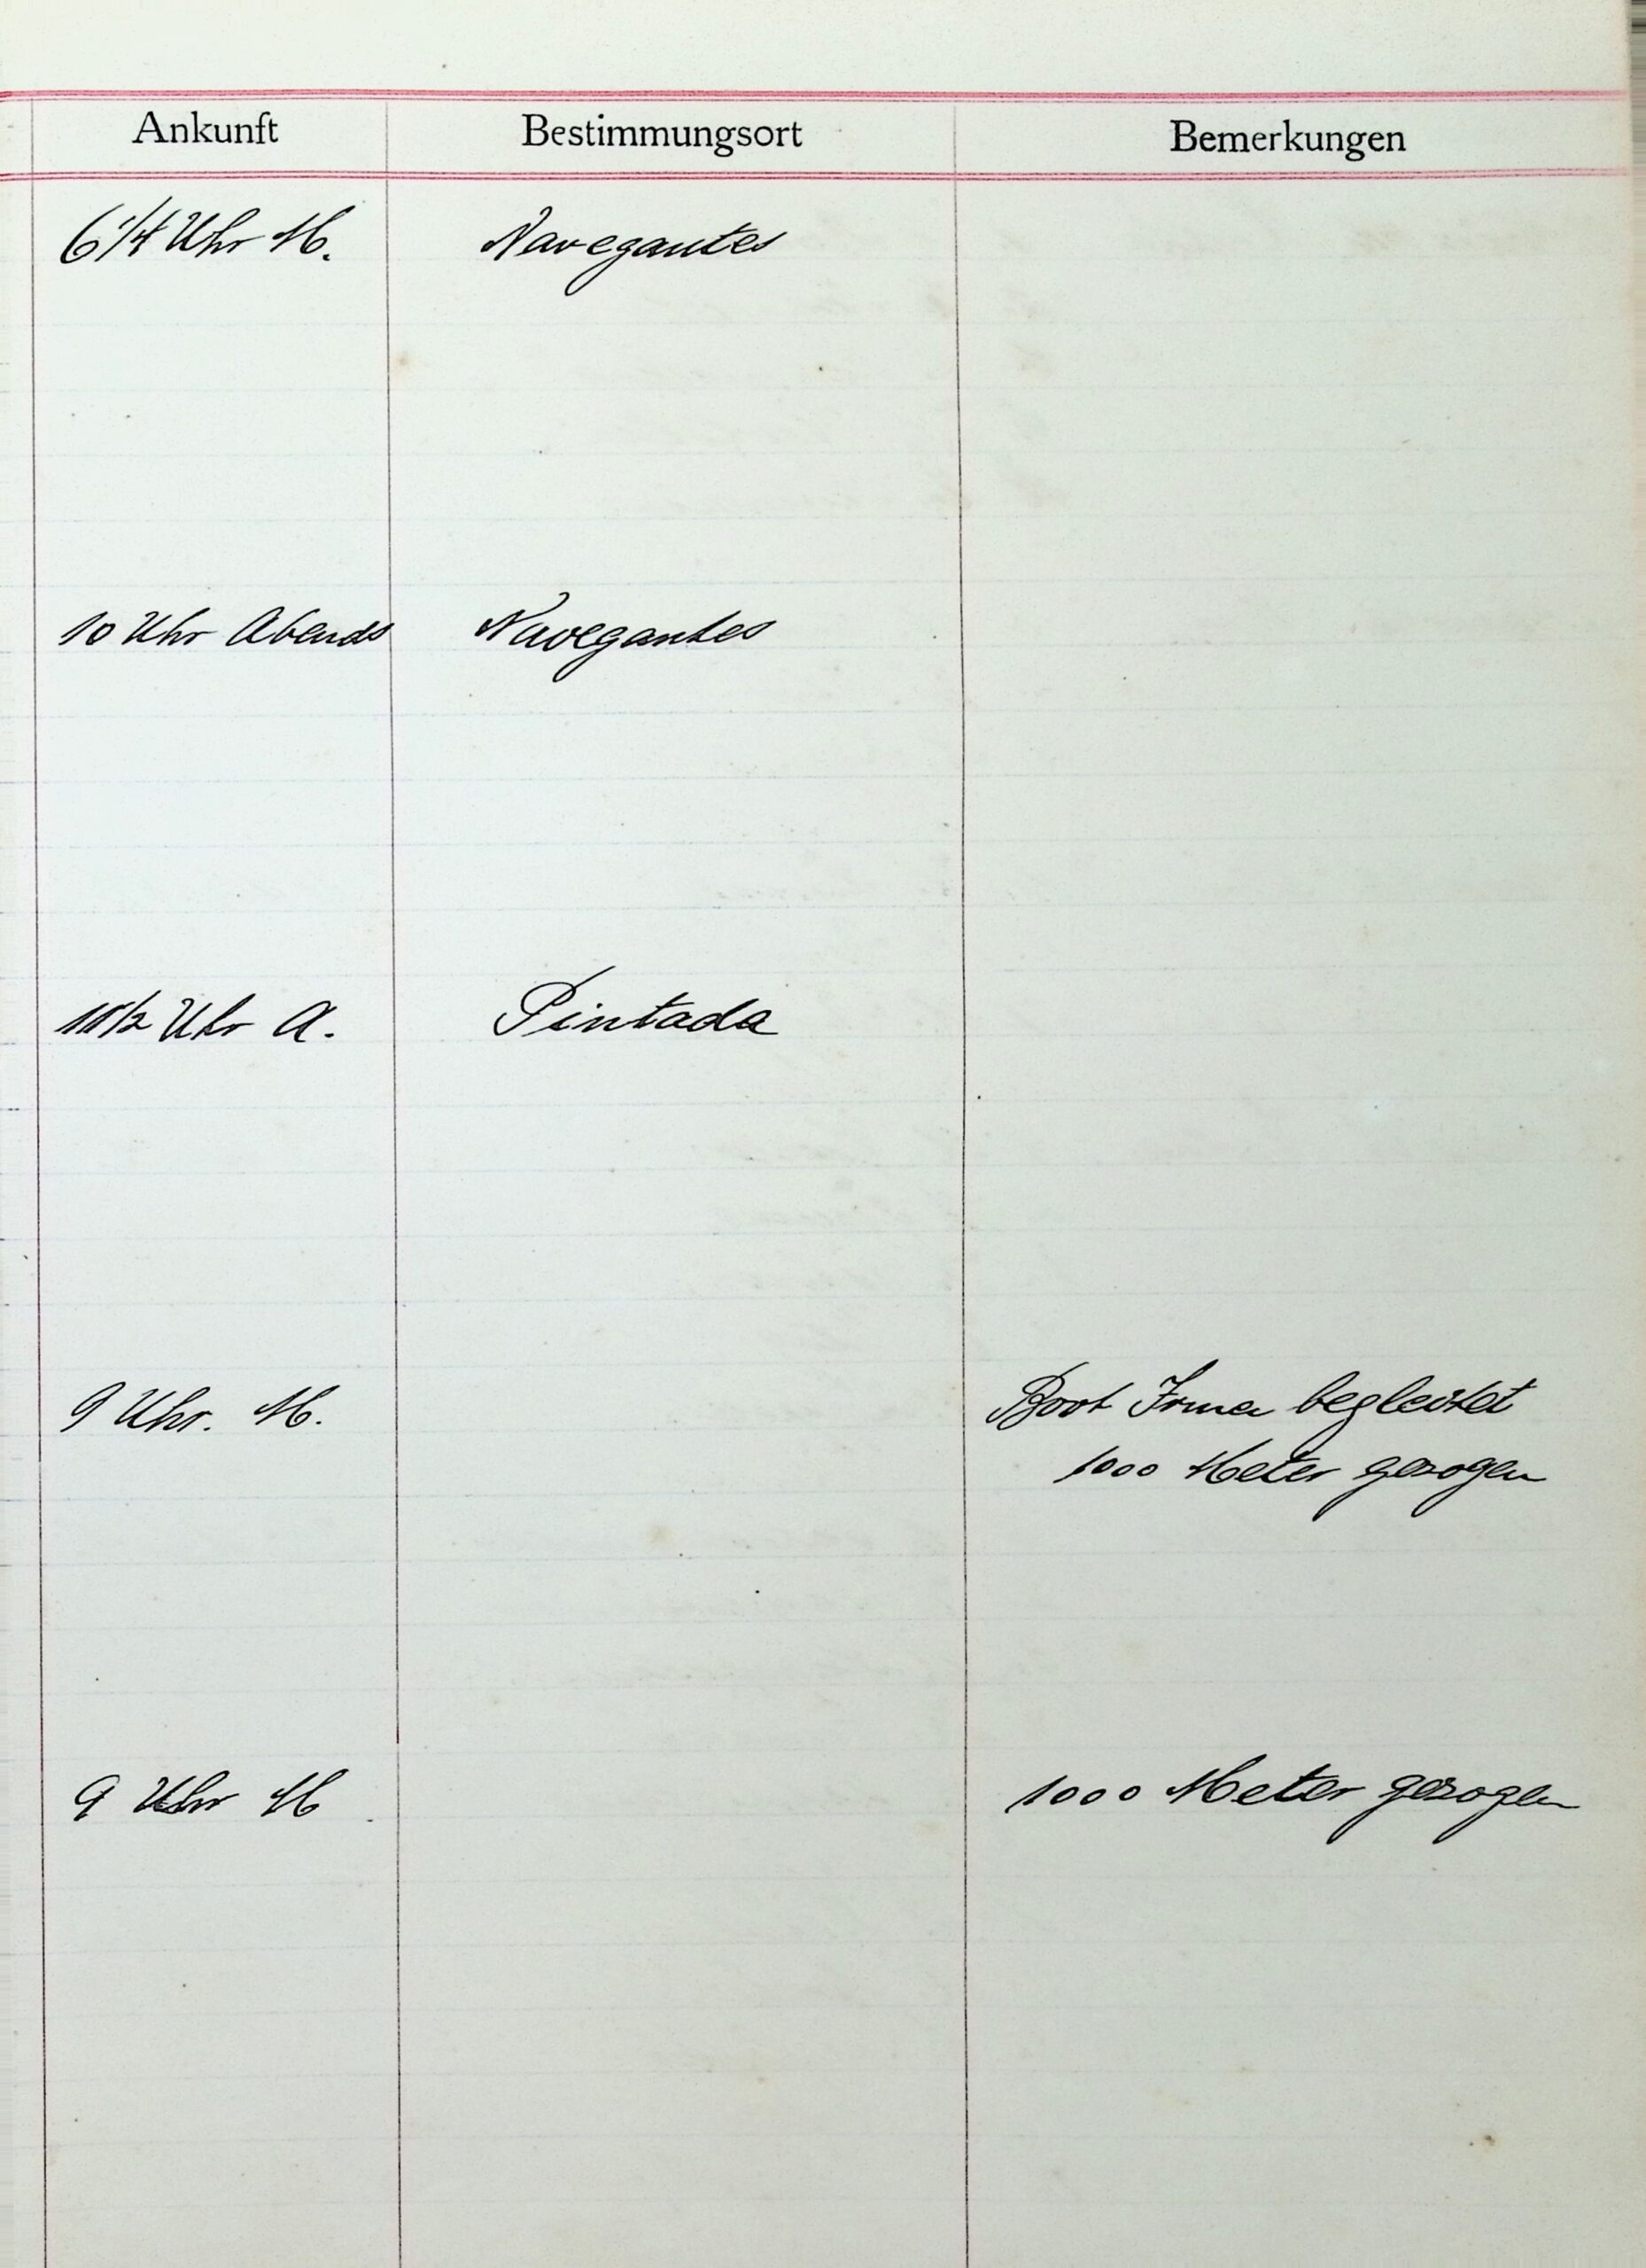 Ankunft Bestimmungsort Bemerkungen
6 1/4 Uhr M. Navegantes
10 Uhr Abends Navegantes
11 1/2 Uhr A. Pintada
9 Uhr. M. Boot Irma begleitet
1000 Meter gezogen
9 Uhr M 1000 Meter gezogen